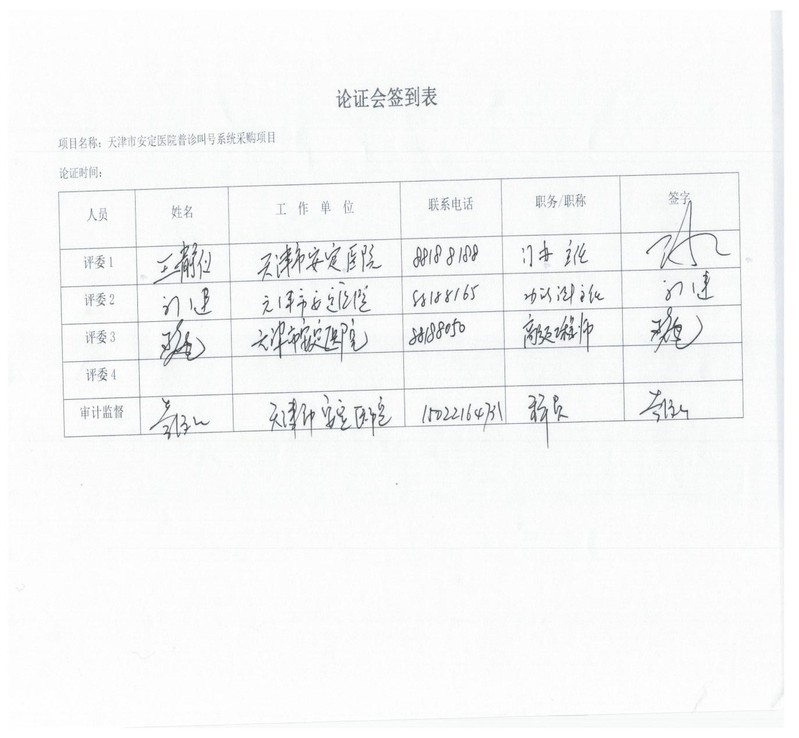 论证会签到表
项目名称：天津市安定医院普诊叫号系统采购项目
论证时间：
人员 姓名 工作单位 联系电话 职务/职称 签字
评委1 王静 天津市安定医院 88188188 门办主任
评委2 刘建 天津市安定医院 88188165 主任 刘建
评委3 天津市安定医院 88188050 高级工程师
评委4
审计监督 天津市安定医院 15022164731 科员